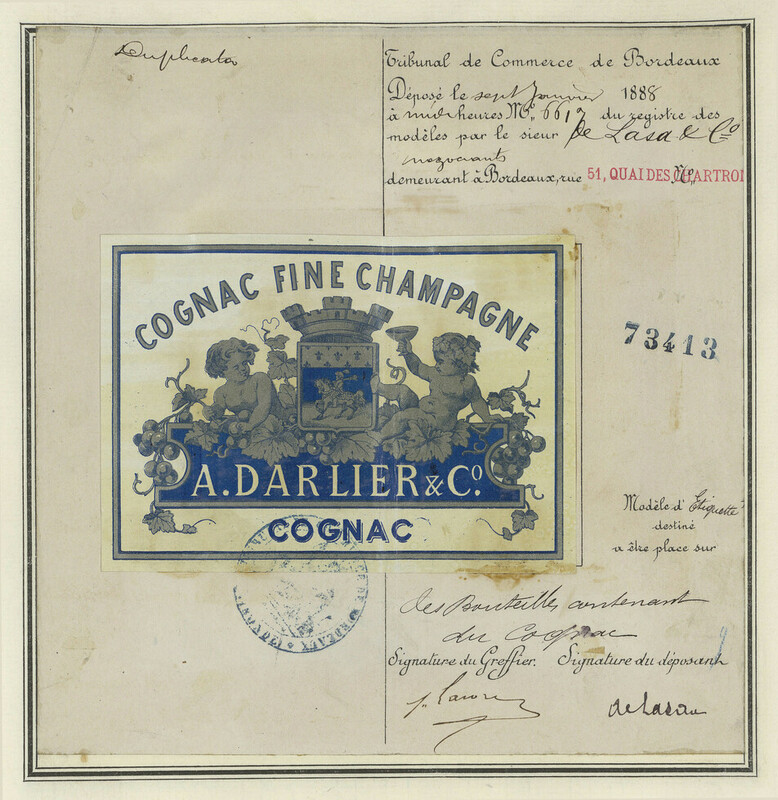 Duplicata
Tribunal de Commerce de Bordeaux
Déposé le sept Janvier 1888
à midi heures No. 6617 du registre des
modèles par le sieur De Lasa & Co
negociants
demeurant à Bordeaux, rue 51, QUAI DES CHARTRON
COGNAC FINE CHAMPAGNE
A. DARLIER & Co.
COGNAC
73413
Modèle d'Etiquette
destiné
a être place sur
des Bouteilles contenant
du Cognac
Signature du Greffier. Signature du déposant
de Lasa